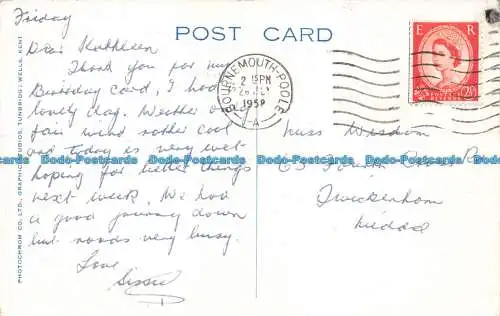 Friday
POST CARD
Dear Kathleen
Thank you for my
Birthday Card, I had a
lovely day. Weather
fair wind rather cool
and today is very wet
hoping for better things
next week. We had
a good journey down
but roads very busy.
Love
Sissie
BOURNEMOUTH-POOLE
2 15PM
1959
A
E R
2½D
Miss Wisdom
63
Twickenham
Middx
PHOTOCHROM CO. LTD., GRAPHIC STUDIOS, TUNBRIDGE WELLS, KENT
Postcards-Docards Postcards-Docards Postcards-Docards Postcards-Docards